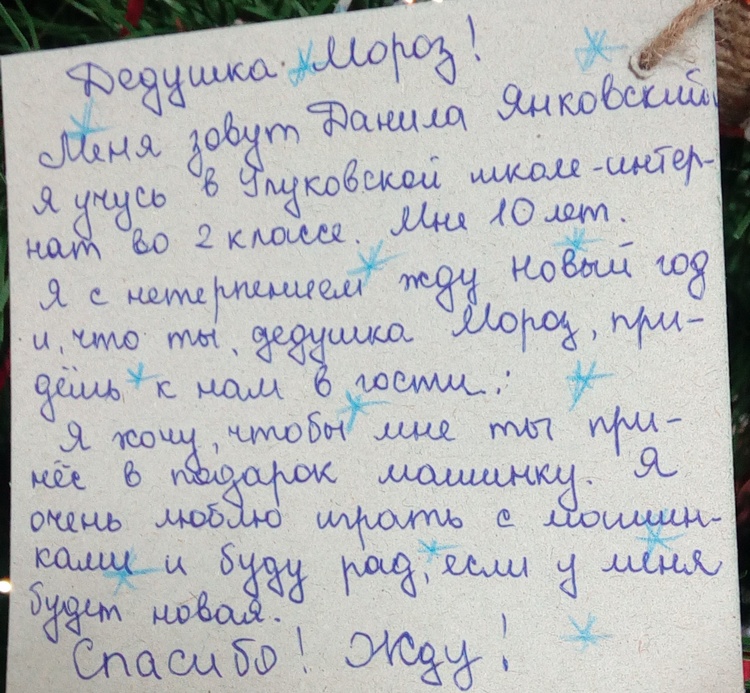 Дедушка Мороз!
Меня зовут Данила Янковский,
я учусь в Глуковской школе-интер-
нат во 2 классе. Мне 10 лет.
Я с нетерпением жду Новый год
и, что ты, дедушка Мороз, при-
дёшь к нам в гости.
Я хочу, чтобы мне ты при-
нёс в подарок машинку. Я
очень люблю играть с машин-
ками и буду рад, если у меня
будет новая.
Спасибо! Жду!